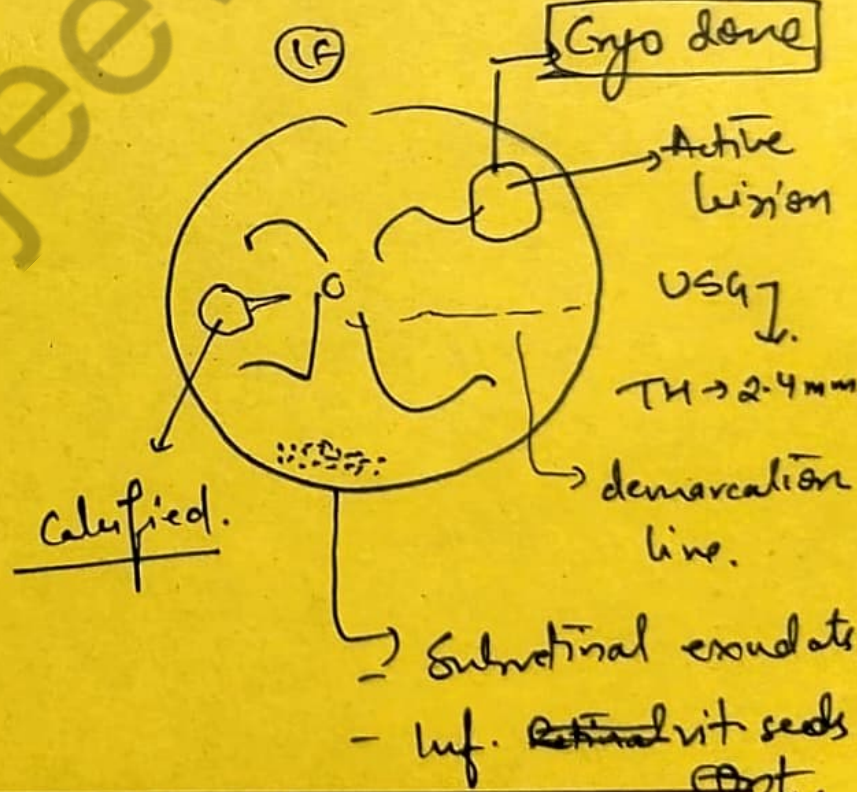 LE
Cryo done
Active
lision
USG
TH → 2.4mm
demarcation
line.
Calcified.
Subretinal exoudats
- Inf. vit seeds